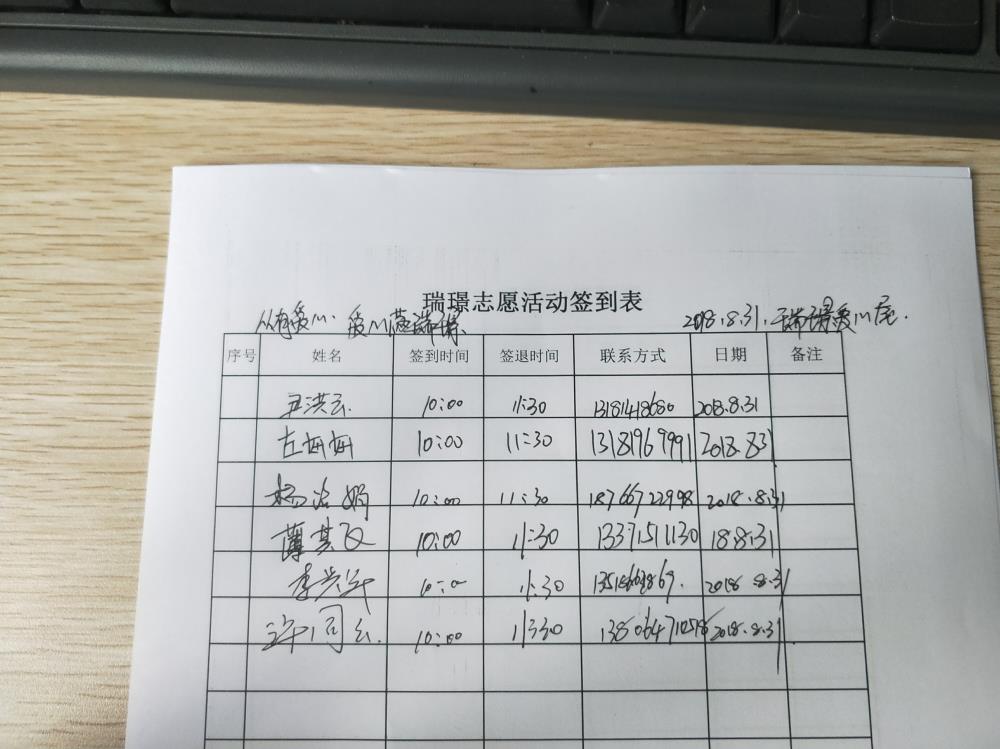 瑞璟志愿活动签到表
2018.8.31.瑞璟爱心屋.
序号 姓名 签到时间 签退时间 联系方式 日期 备注
王洪云 10:00 11:30 13181418680 2018.8.31
左梅梅 10:00 11:30 13181969991 2018.831
杨洁娟 10:00 11:30 18766722998 2018.8.31
薄其飞 10:00 11:30 13371511130 18.8.31
李兴华 10:0 11:30 2018 8.31
许同云. 10:00 11:30 2018.8.31